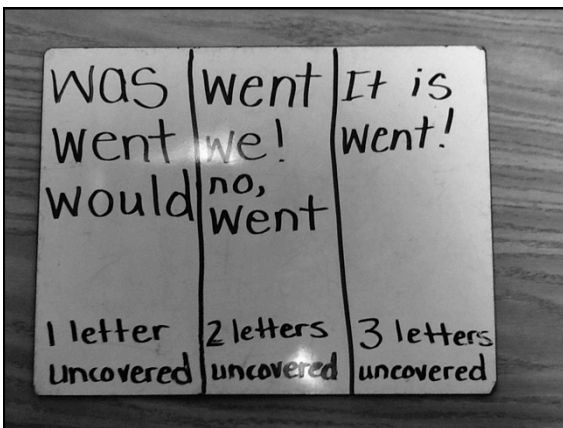 was
went
would
1 letter
uncovered
went
we!
no,
went
2 letters
uncovered
It is
went!
3 letters
uncovered